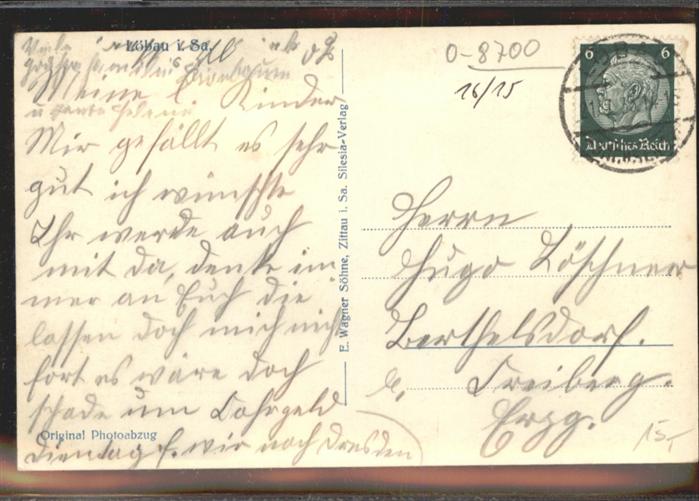 Löbau i. Sa.
Meine l. Kinder
Mir gefällt es sehr
gut ich wünschte
Ihr werde auch
mit da, denke im
mer an Euch die
lassen doch mich nicht
fort es wäre doch
schade um Fahrgeld
Dienstag f. wir nach Dresden
Original Photoabzug
E. Wagner Söhne, Zittau i. Sa. Silesia-Verlag
0-8700
16/15
6 6
Deutsches Reich
Herrn
Hugo Löschner
Berthelsdorf.
b. Freiberg.
Erzg.
15,-